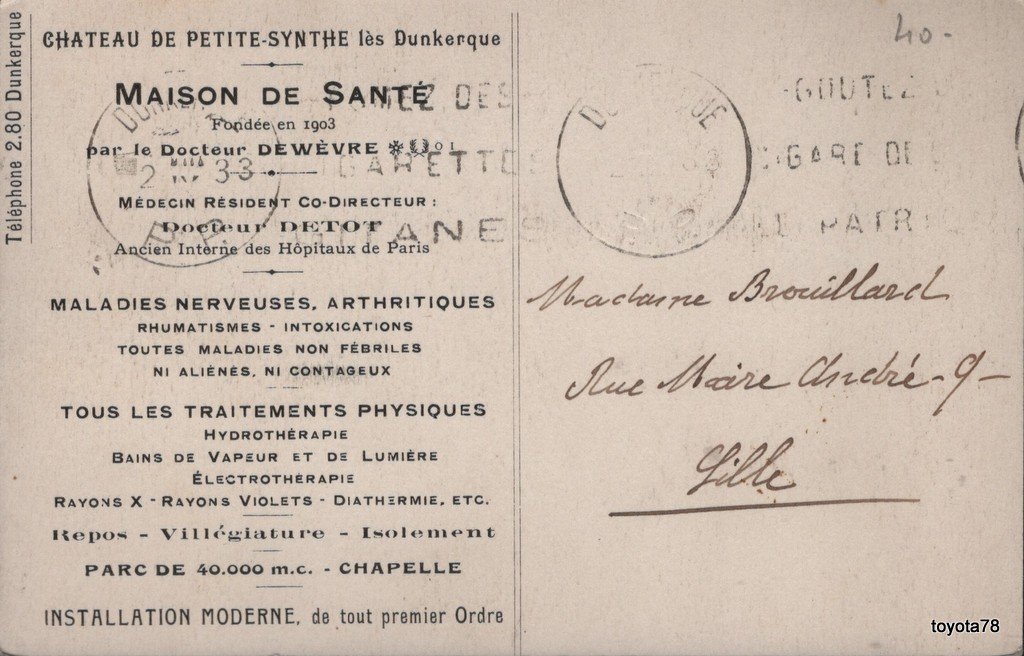 Téléphone 2.80 Dunkerque
CHATEAU DE PETITE-SYNTHE lès Dunkerque
MAISON DE SANTÉ
Fondée en 1903
par le Docteur DEWÈVRE
MÉDECIN RÉSIDENT CO-DIRECTEUR :
Docteur DETOT
Ancien Interne des Hôpitaux de Paris
MALADIES NERVEUSES, ARTHRITIQUES
RHUMATISMES - INTOXICATIONS
TOUTES MALADIES NON FÉBRILES
NI ALIÉNÉS, NI CONTAGEUX
TOUS LES TRAITEMENTS PHYSIQUES
HYDROTHÉRAPIE
BAINS DE VAPEUR ET DE LUMIÈRE
ÉLECTROTHÉRAPIE
RAYONS X - RAYONS VIOLETS - DIATHERMIE, ETC.
Repos - Villégiature - Isolement
PARC DE 40.000 m.c. - CHAPELLE
INSTALLATION MODERNE, de tout premier Ordre
33
40-
GOUTEZ
DE
Madame Brouillard
Rue Maire André - 9 -
Lille
toyota78